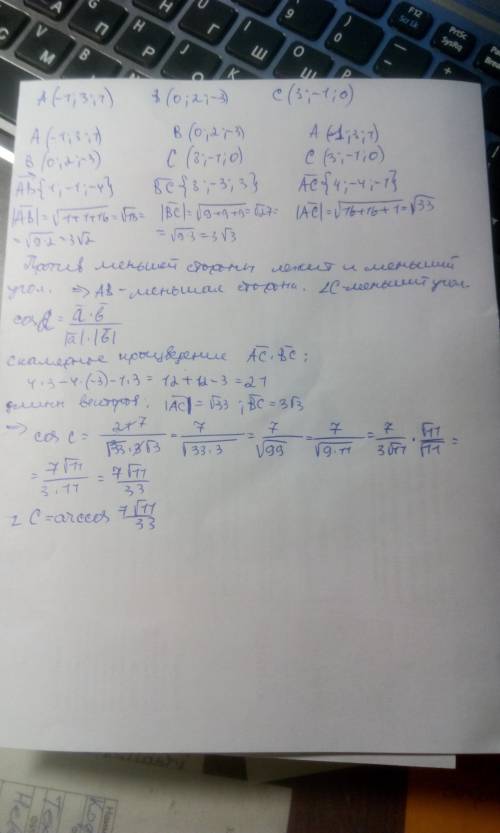 A(-1; 3; 1) B(0; 2; -3) C(3; -1; 0)
A(-1; 3; 1) B(0; 2; -3) A(-1; 3; 1)
B(0; 2; -3) C(3; -1; 0) C(3; -1; 0)
AB{1; -1; -4} BC{3; -3; 3} AC{4; -4; -1}
|AB| = √1+1+16 = √18 = |BC| = √9+9+9 = √27 = |AC| = √16+16+1 = √33
= √9·2 = 3√2 = √9·3 = 3√3
Против меньшей стороны лежит и меньший
угол. => AB - меньшая сторона. ∠C - меньший угол
cos = a·b / |a|·|b|
скалярное произведение AC · BC:
4·3-4·(-3)-1·3 = 12+12-3 = 21
длины векторов. |AC| = √33; BC = 3√3
=> cos C = 217 / √33·3√3 = 7 / √33·3 = 7 / √99 = 7 / √9·11 = 7 / 3√11 · √11 / √11 =
= 7√11 / 3·11 = 7√11 / 33
∠C = arccos 7√11 / 33
F12
PrtSc
SysRq